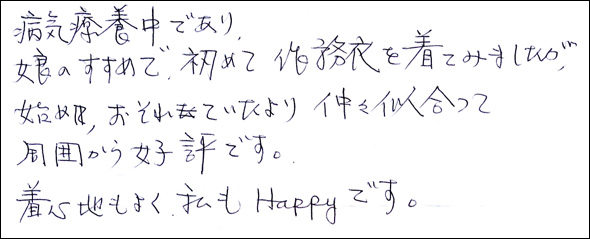 病気療養中であり、
娘のすすめで、初めて作務衣を着てみましたが、
始めは、おそれていたより仲々似合って
周囲から好評です。
着心地もよく、私もHappyです。